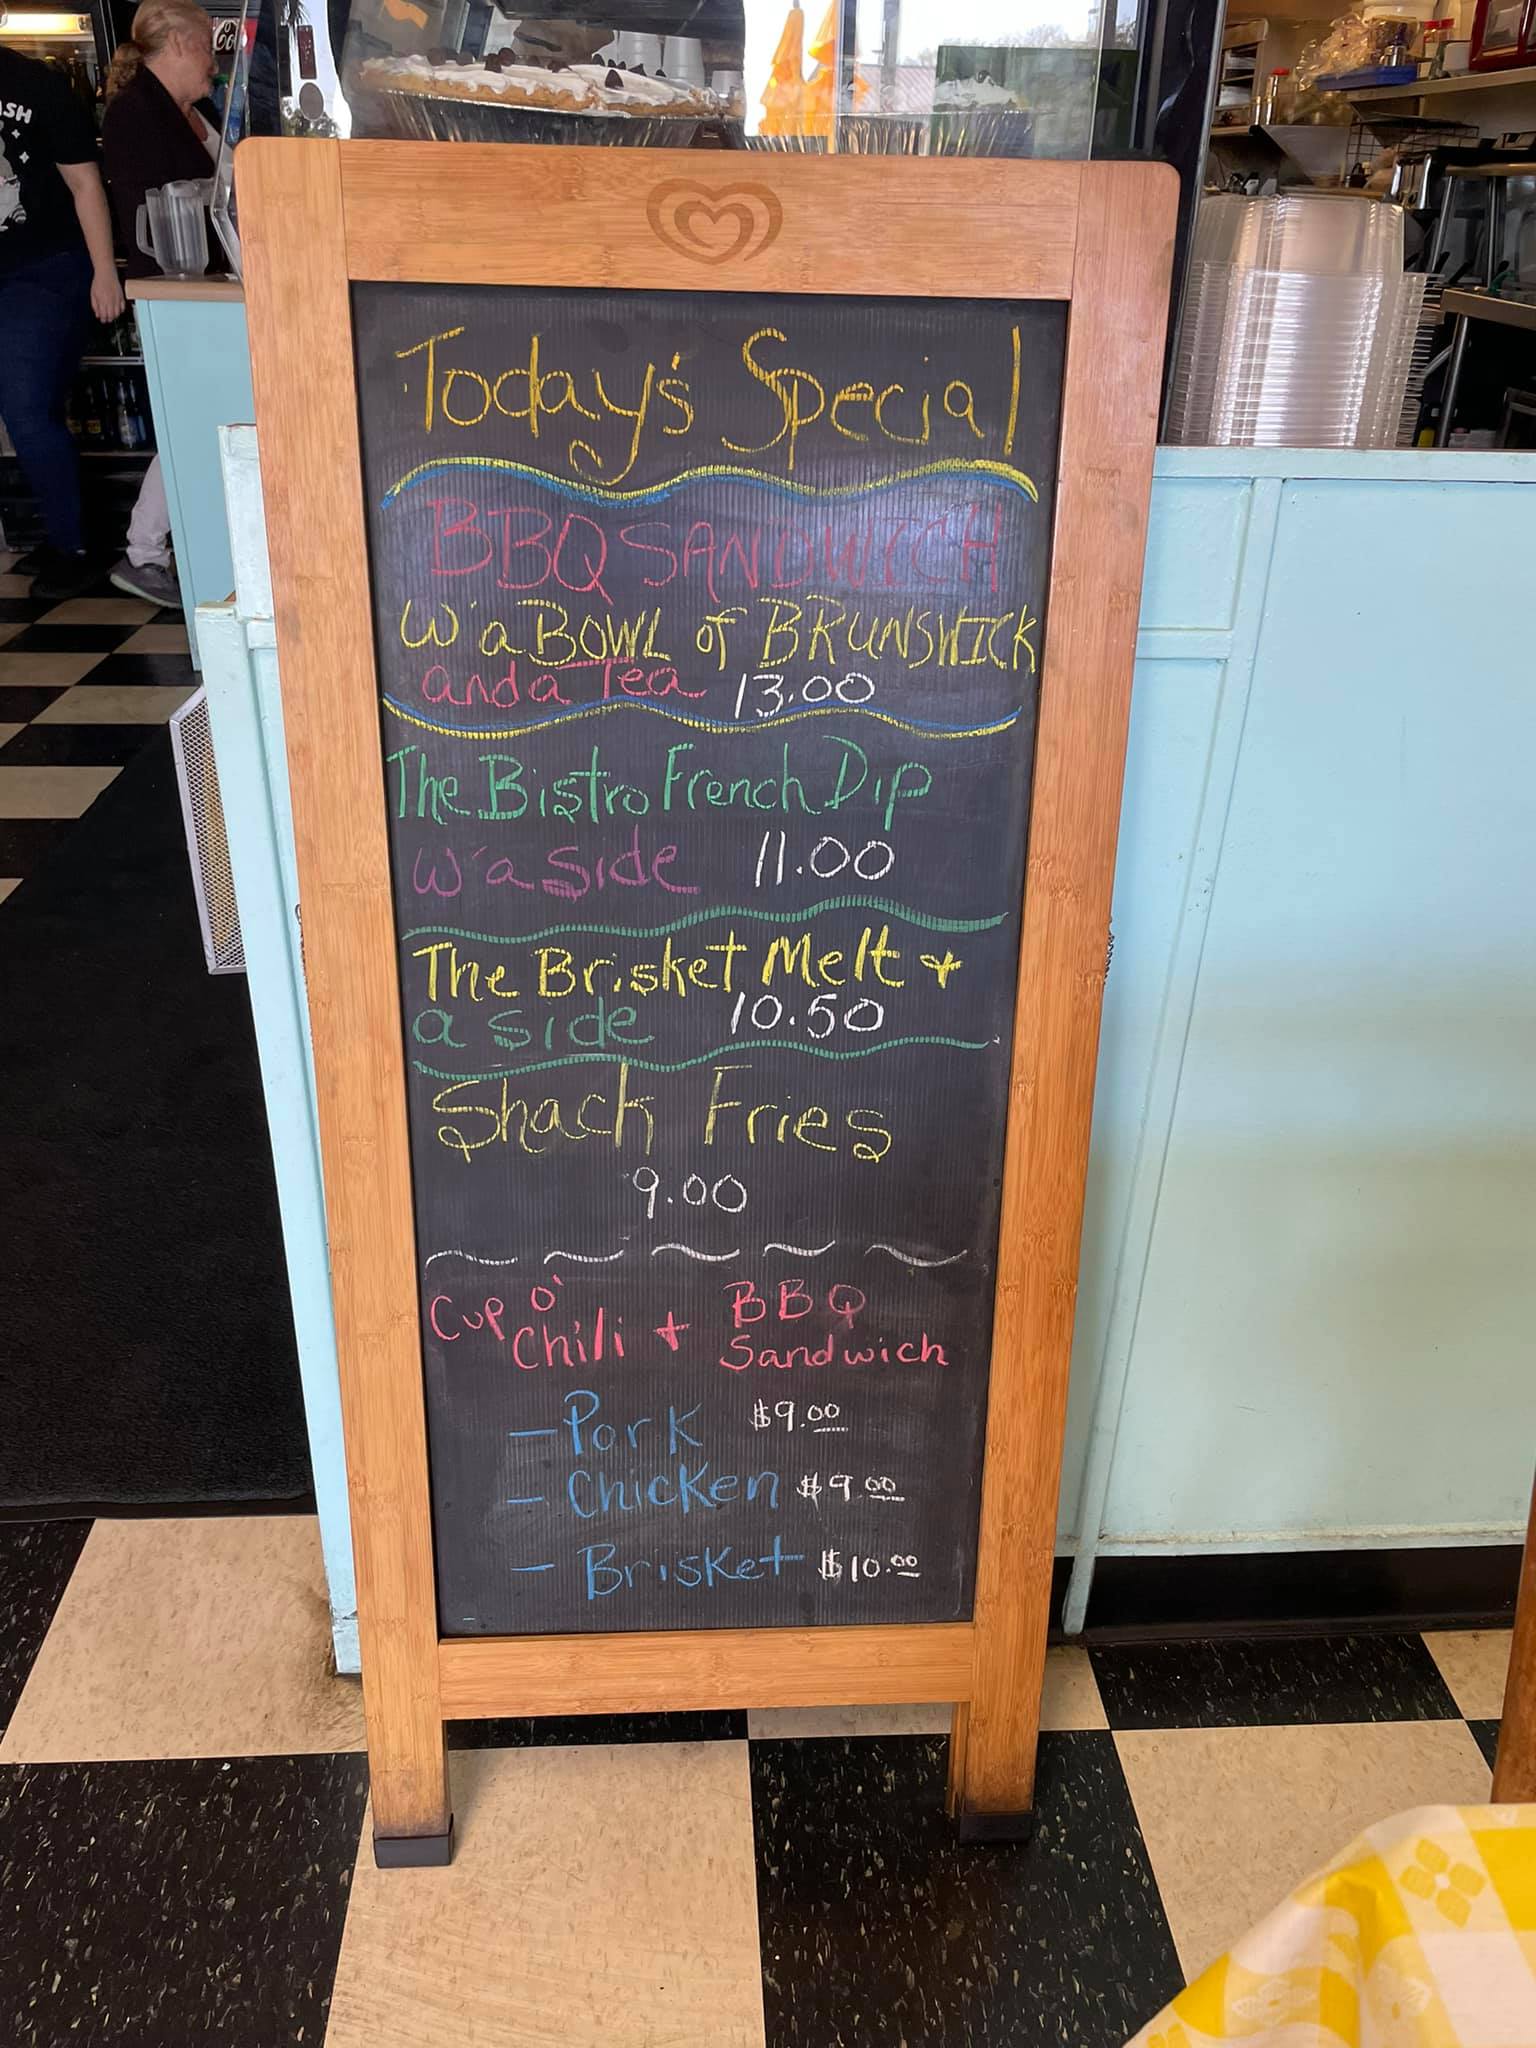 ASH
Co
Today's Special
BBQ SANDWICH
W' a BOWL of BRUNSWICK
and a Tea 13.00
The Bistro French Dip
W' a Side 11.00
The Brisket Melt +
a side 10.50
Shack Fries
9.00
Cup O' Chili + BBQ Sandwich
- Pork $9.00
- Chicken $9.00
- Brisket $10.00